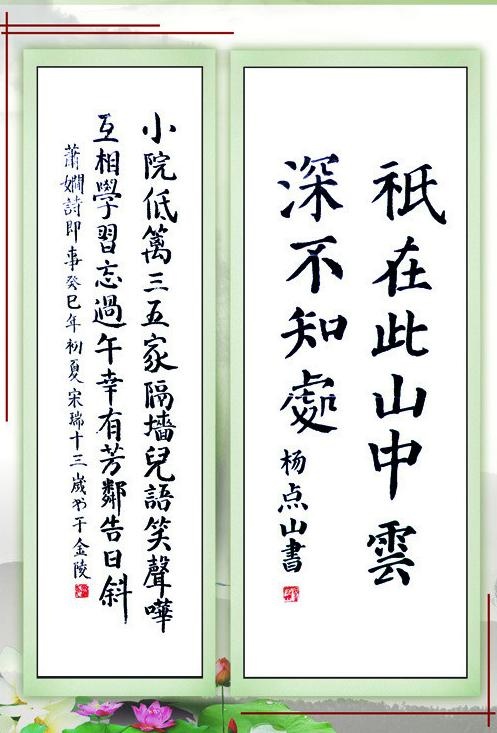 祇在此山中雲
深不知處 杨点山書
小院低篱三五家隔墻兒語笑聲嘩
互相學習忘過午幸有芳鄰告日斜
蕭嫻詩即事癸巳年初夏宋瑞十三歲书于金陵